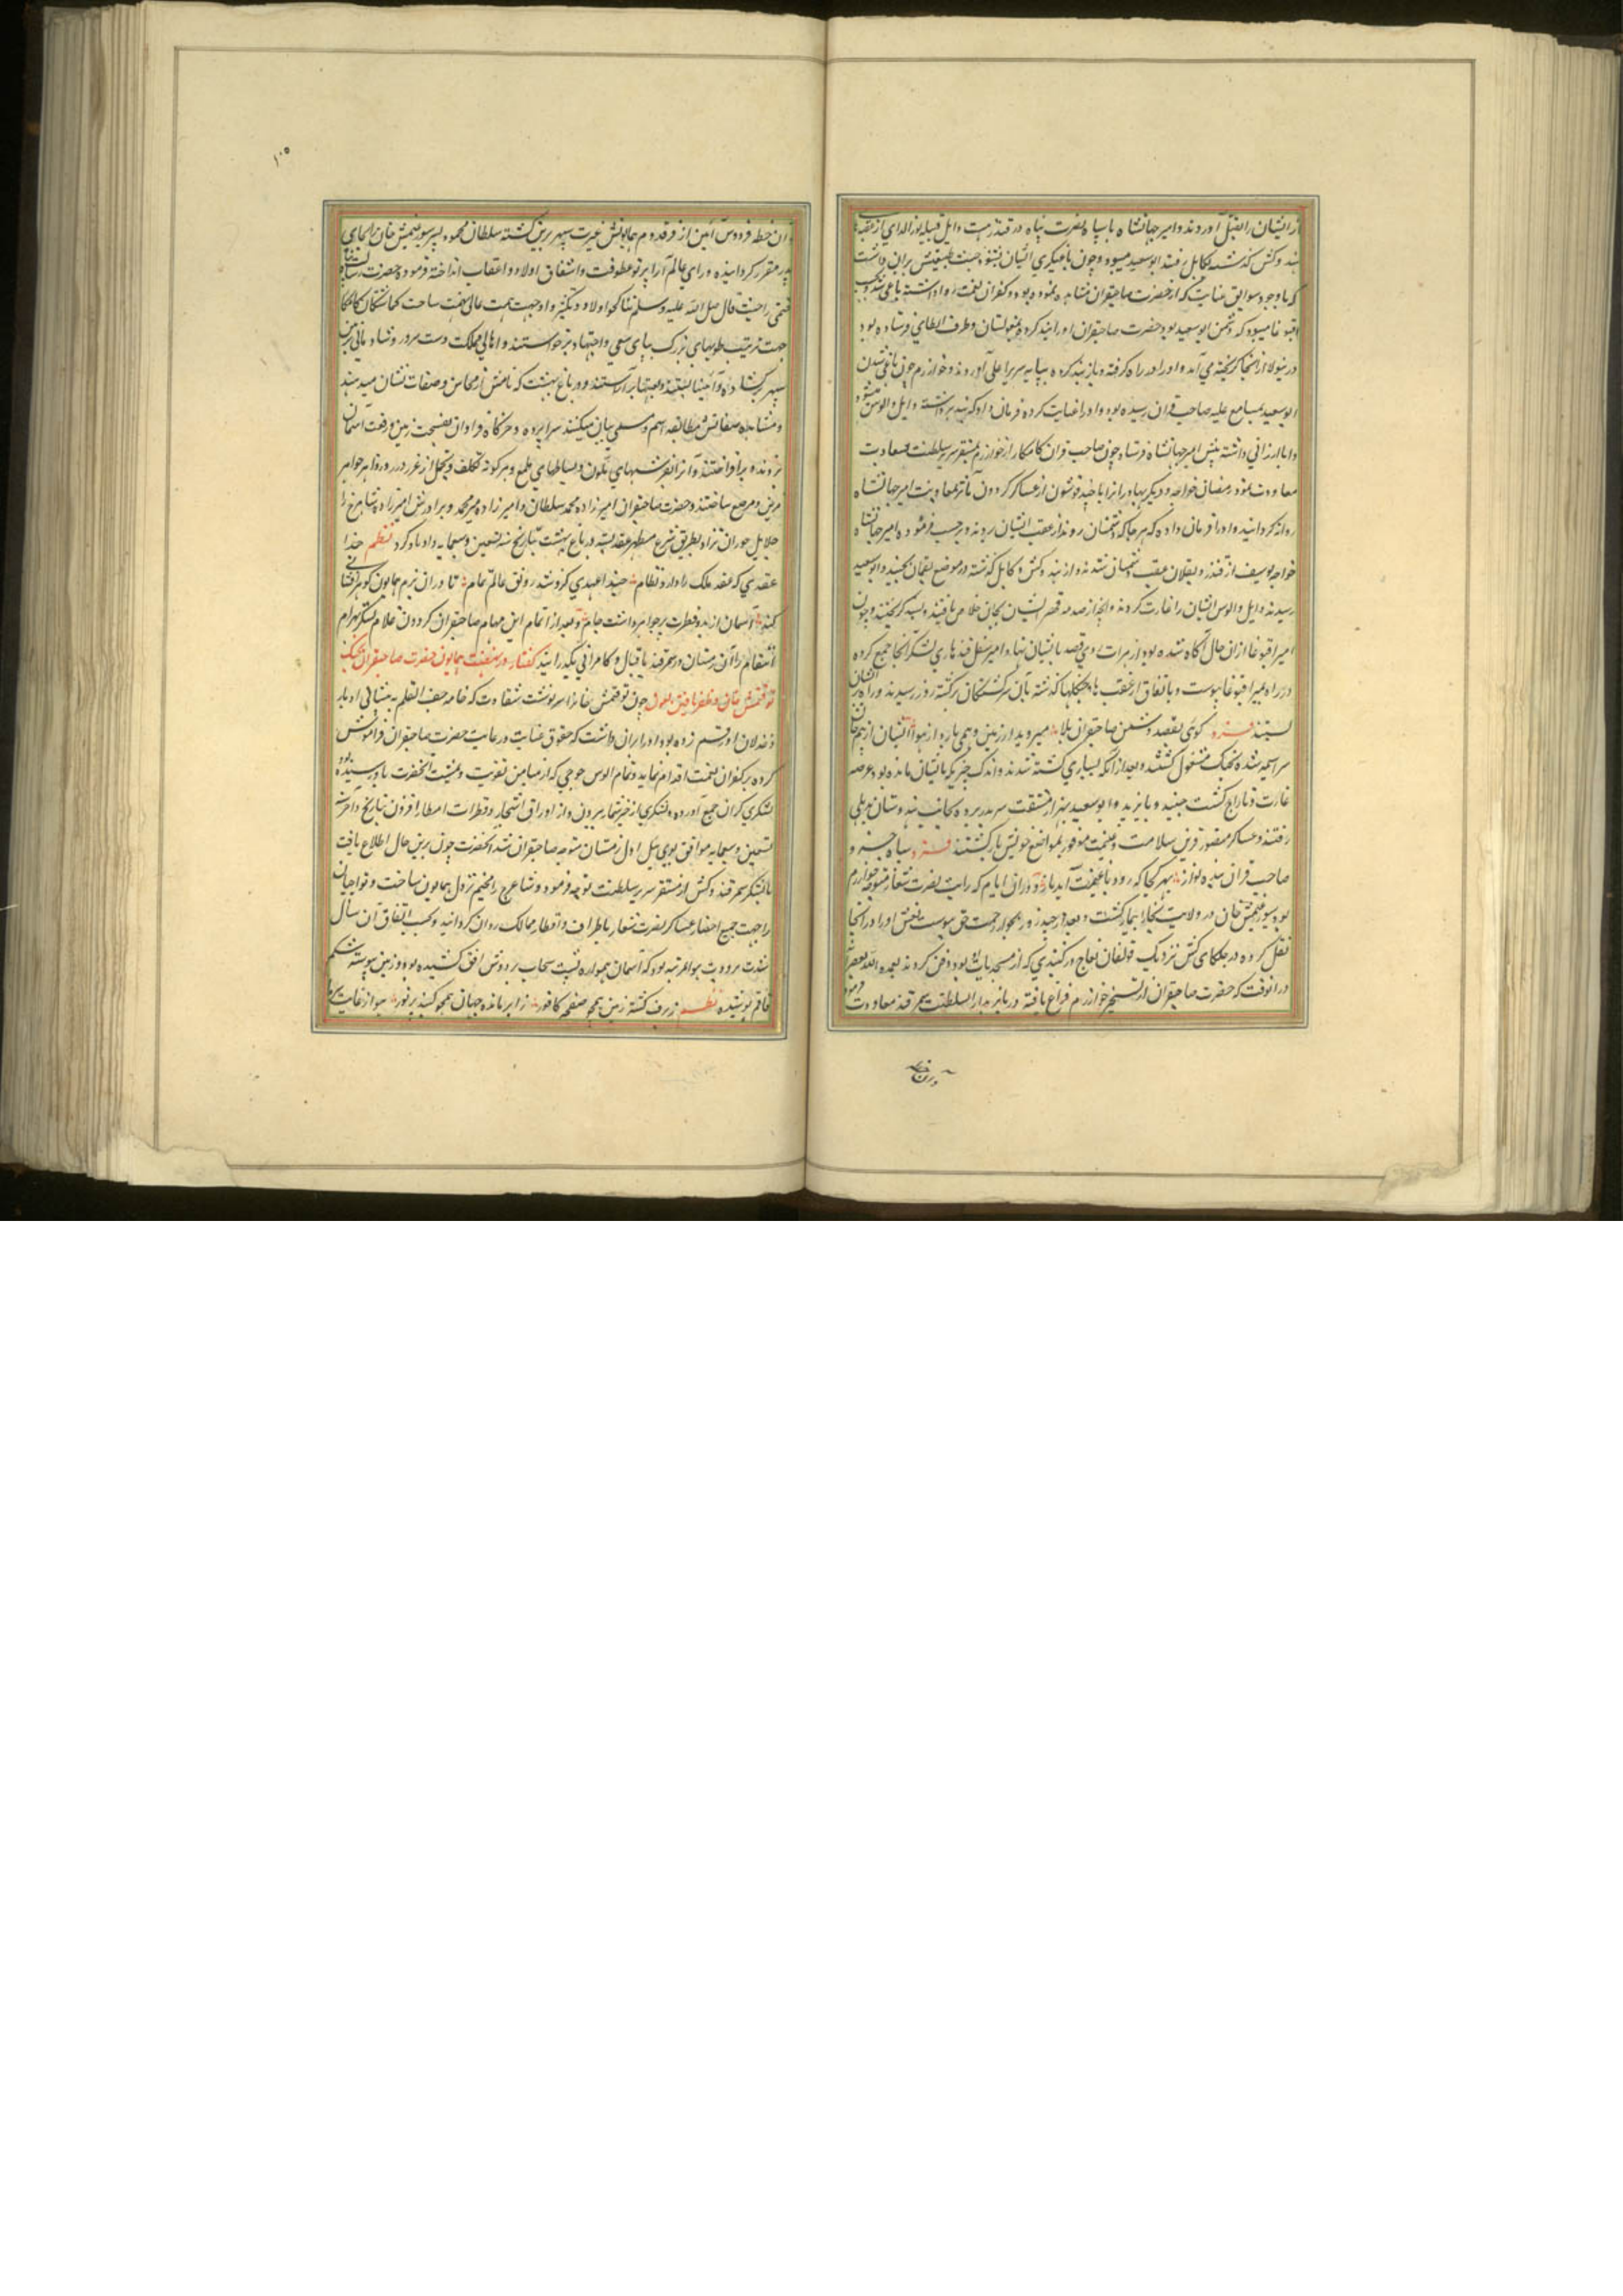 از ایشان را بقتل آوردند و امیر جهانشاه با سپاه نصرت پناه در قندز هست و ایل قبیله بورالدای از عقبه
هندوکش گذشته بکابل رفتند ابوسعید میسود و چون یاغیگری ایشان شنود خبث طبیعتش بران داشت
که با وجود سوابق عنایت که از حضرت صاحبقران مشاهده نموده بود و کفران نعمت روا داشته یاغی شد و
اقبوغا میسود که دشمن ابوسعید بود حضرت صاحبقران او را بند کرده بمغولستان و طرف الطای فرستاده بود
درینولا از انجا گریخته می آمد و او را در راه گرفته و باز بند کرده بپایه سریر اعلی آوردند و خوارزم چون یاغی شدن
ابوسعید بمسامع علیه صاحب قران رسیده بود او را عنایت کرده فرمان داد که بند برداشته و ایل و الوس
و اما ارزانی داشته پیش امیر جهانشاه فرستاد و چون صاحب قران کامکار از خوارزم بمستقر سریر سلطنت بسعادت
معاودت نمود رمضان خواجه و دیگر بهادرانرا با چند قوشون از عساکر گردون مآثر بمعاونت امیر جهانشاه
روانه گردانید و او را فرمان داد که هر جا که دشمنان روند از عقب ایشان بروند و بر حسب فرموده امیر جهانشاه
خواجه یوسف از قندز و بقلان عقب دشمنان شدند و از هندوکش و کابل گذشته در موضع لقمان بجنید و ابوسعید
رسیدند و ایل و الوس ایشان را غارت کردند و آنچه از صدمه قهر ایشان بجان خلاص یافتند و بسند گریختند و چون
امیر اقبوغا ازان حال آگاه شده بود از هرات روی قصد بایشان نهاد و امیر سیفل قندهاری لشکر آنجا جمع کرده
در راه بمیر اقبوغا پیوست و باتفاق از عقب با جنگلها گذشته بآن سرگشتگان برگشته روز رسیدند و راه
بستند فرد کوی بقصد دشمن صاحبقران بلا میروید از زمین و همی بارد از هوا ایشان از بیم جان
سراسیمه شده بجنگ مشغول گشتند و بعد از آنکه بسیاری کشته شدند و اندک چیزیکه بایشان مانده بود عرصه
غارت و تاراج گشت جنید و بایزید و ابوسعید بهزار مشقت سر بدر برده بجانب هندوستان بدهلی
رفتند و عساکر منصور قرین سلامت و غنیمت موفور بمواضع خویش بازگشتند فرد سپاه خسرو
صاحب قران بنده نواز بهر کجا که رود با غنیمت آید باز و دران ایام که رایت نصرت شعار متوجه خوارزم
بود سیورغتمش خان در ولایت بخارا بیمار گشت و بعد از چند روز بجوار رحمت حق پیوست نعش او را در انجا
نقل کرده در جلکای کش نزدیک قولقان بغاج در گنبدی که از مستحدثات او بود دفن کردند
در انوقت که حضرت صاحبقران از تسخیر خوارزم فراغ یافته دربار بدار السلطنت سمرقند معاودت فرمود
و ان خطه
۱۰۵
و ان خطه فردوس آیین از فر قدوم همایونش غیرت سپهر برین گشته سلطان محمود پسر سیورغتمش خان را بجای
پدر مقرر گردانیده و رای عالم آرا پرتو عطوفت و اشفاق اولاد و اعقاب انداخته فرموده حضرت رسالت
ختمی را حیث قال صلی الله علیه و سلم تناکحوا و لاد و تکثروا وجهه همت عالی نهمت ساخت گماشتگان کامکار
جهت ترتیب طویهای بزرگ بپای سعی و اجتهاد برخواستند و اهالی مملکت دست سرور و شادمانی برین
سپهر برگشاده و آیینها بستند و قبتها بر آراستند و در باغ بهشت که نامش از محاسن و صفات نشان میدهد
و مشاهده صفاتش مطابقه اسم و مسمی بیان میکند سراپرده و خرگاه فراوان بفسحت زمین و رفعت آسمان
بر زده برافراختند و آنرا بفرشهای ملون و بساطهای ملمع و هر گونه تکلف و تجمل از غرر درر و زواهر جواهر
مزین و مرصع ساختند و حضرت صاحبقران امیرزاده محمد سلطان و امیرزاده پیر محمد و برادرش امیرزاده شاهرخ را
جلایل حوران نژاد بطریق شرع مطهر عقد بسته در باغ بهشت بتاریخ سنه تسعین و سبعمایه داد و کرد نظم خدا
عقدی که عقد ملک را داد و نظام حبذا عهدی کزو شد رونق عالم تمام تا دران بزم همایون گوهر افشانی
کند آسمان از بدو فطرت پر جواهر داشت جام و بعد از اتمام این مهام صاحبقران گردون غلام لشکر بهرام
انتقام را آن زمستان در سمرقند باقبال و کامرانی بگذرانید گفتار در نهضت همایون حضرت صاحبقران بجنگ
توقتمش خان و ظفر یافتن بعون چون توقتمش خانرا سرنوشت شقاوت که خامه جف القلم به پیشانی ادبار
و خذلان او رقم زده بود او را بران داشت که حقوق عنایت و رعایت حضرت صاحبقران فراموش
کرده بر کفران نعمت اقدام نماید و تمام الوس جوجی که از میامن تقویت و تمشیت آنحضرت باو رسیده بود
لشکری گران جمع آورده و لشکری از حیز شمار بیرون و از اوراق اشجار و قطرات امطار افزون بتاریخ و آخر سنه
تسعین و سبعمایه موافق لوی ئیل اول زمستان متوجه صاحبقران شد آنحضرت چون برین حال اطلاع یافت
با لشکر سمرقند و کش از مستقر سریر سلطنت توجه فرمود و ساغرج را مخیم نزول همایون ساخت و تواجیان
را جهت جمیع احضار عساکر نصرت شعار باطراف و اقطار ممالک روان گردانید و بحسب اتفاق آن سال
شدت برودت هوا بمرتبه بود که آسمان همواره پشت سحاب بر دوش افق کشیده بود و زمین پیوسته شکم
قاقم پوشیده نظم ز برف گشته زمین همچو صفه کافور ز ابر مانده جهان همچو گنبد پر نور هوا ز غایت سرما